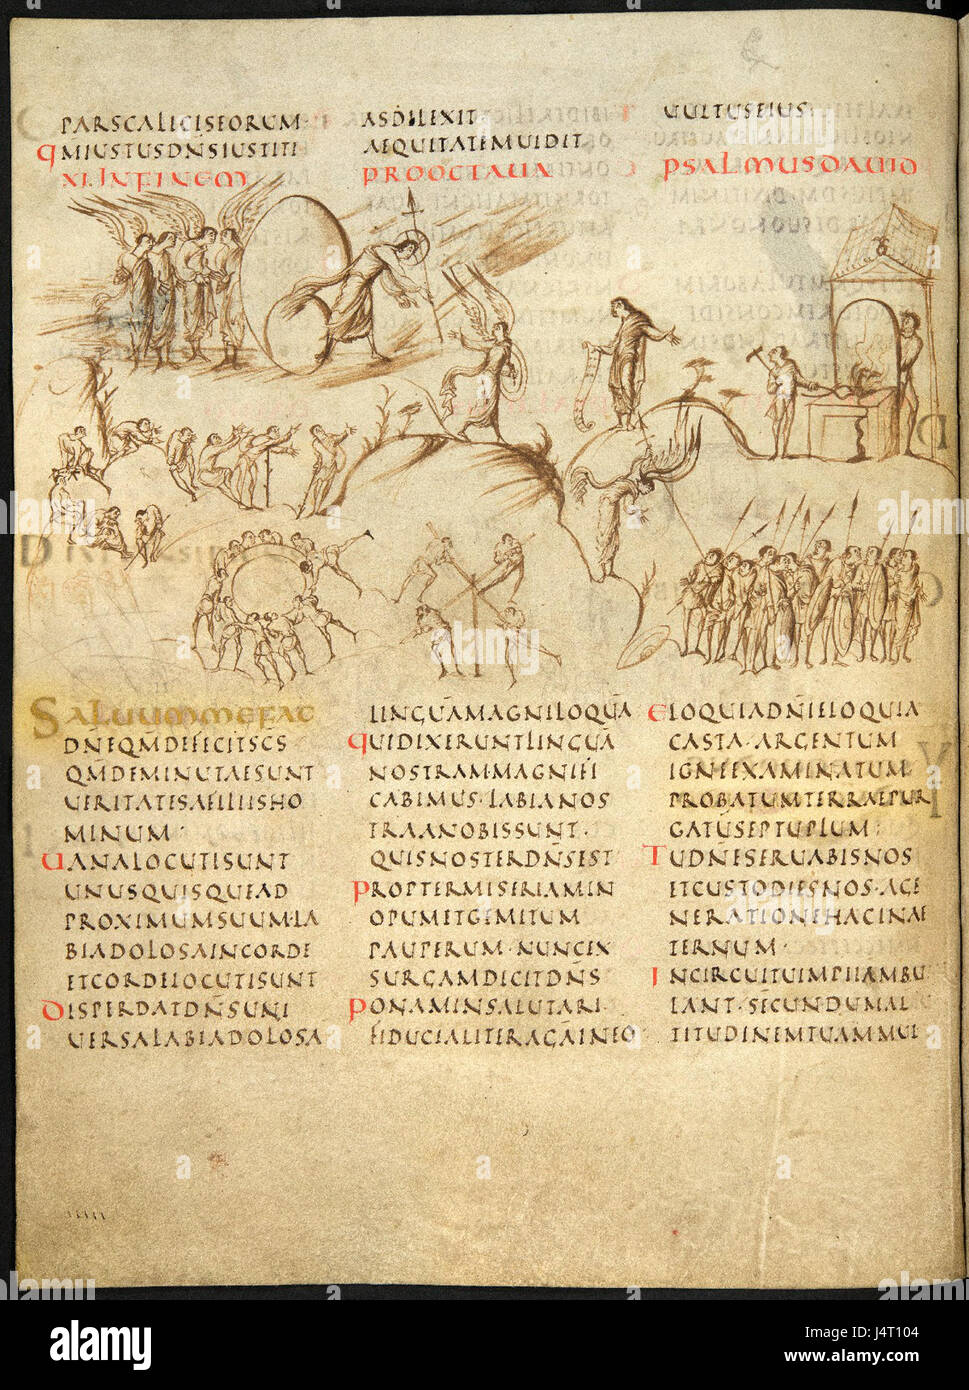 PARSCALICISEORUM
QMIUSTUSDN̄SIUSTITI
ASDILEXIT
AEQUITATEMUIDIT
UULTUSEIUS
XI. INFINEM
PROOCTAUA
PSALMUSDAUID
SALUUMMEFAC
DN̄EQM̄DEFECITSC̄S
QM̄DEMINUTAESUNT
UERITATESAFILIISHO
MINUM·
UANALOCUTISUNT
UNUSQUISQUEAD
PROXIMUMSUUM·LA
BIADOLOSAINCORDE
ETCORDELOCUTISUNT
DISPERDATDN̄SUNI
UERSALABIADOLOSA
LINGUĀMAGNILOQUĀ
QUIDIXERUNTLINGUĀ
NOSTRAMMAGNIFI
CABIMUS·LABIANOS
TRAANOBISSUNT·
QUISNOSTERDN̄SEST
PROPTERMISERIAMIN
OPUMETGEMITUM
PAUPERUM·NUNCEX
SURGAMDICITDN̄S
PONAMINSALUTARI·
FIDUCIALITERAGĀINEO
ELOQUIADN̄IELOQUIA
CASTA·ARGENTUM
IGNEEXAMINATUM
PROBATUMTERRAEPUR
GATŪSEPTUPLUM:
TUDN̄ESERUABISNOS
ETCUSTODIESNOS·AGE
NERATIONEHACINAE
TERNUM·
INCIRCUITUIMPIIAMBU
LANT·SECUNDUMAL
TITUDINEMTUAMMUL
alamy
Image ID: J4T104
www.alamy.com